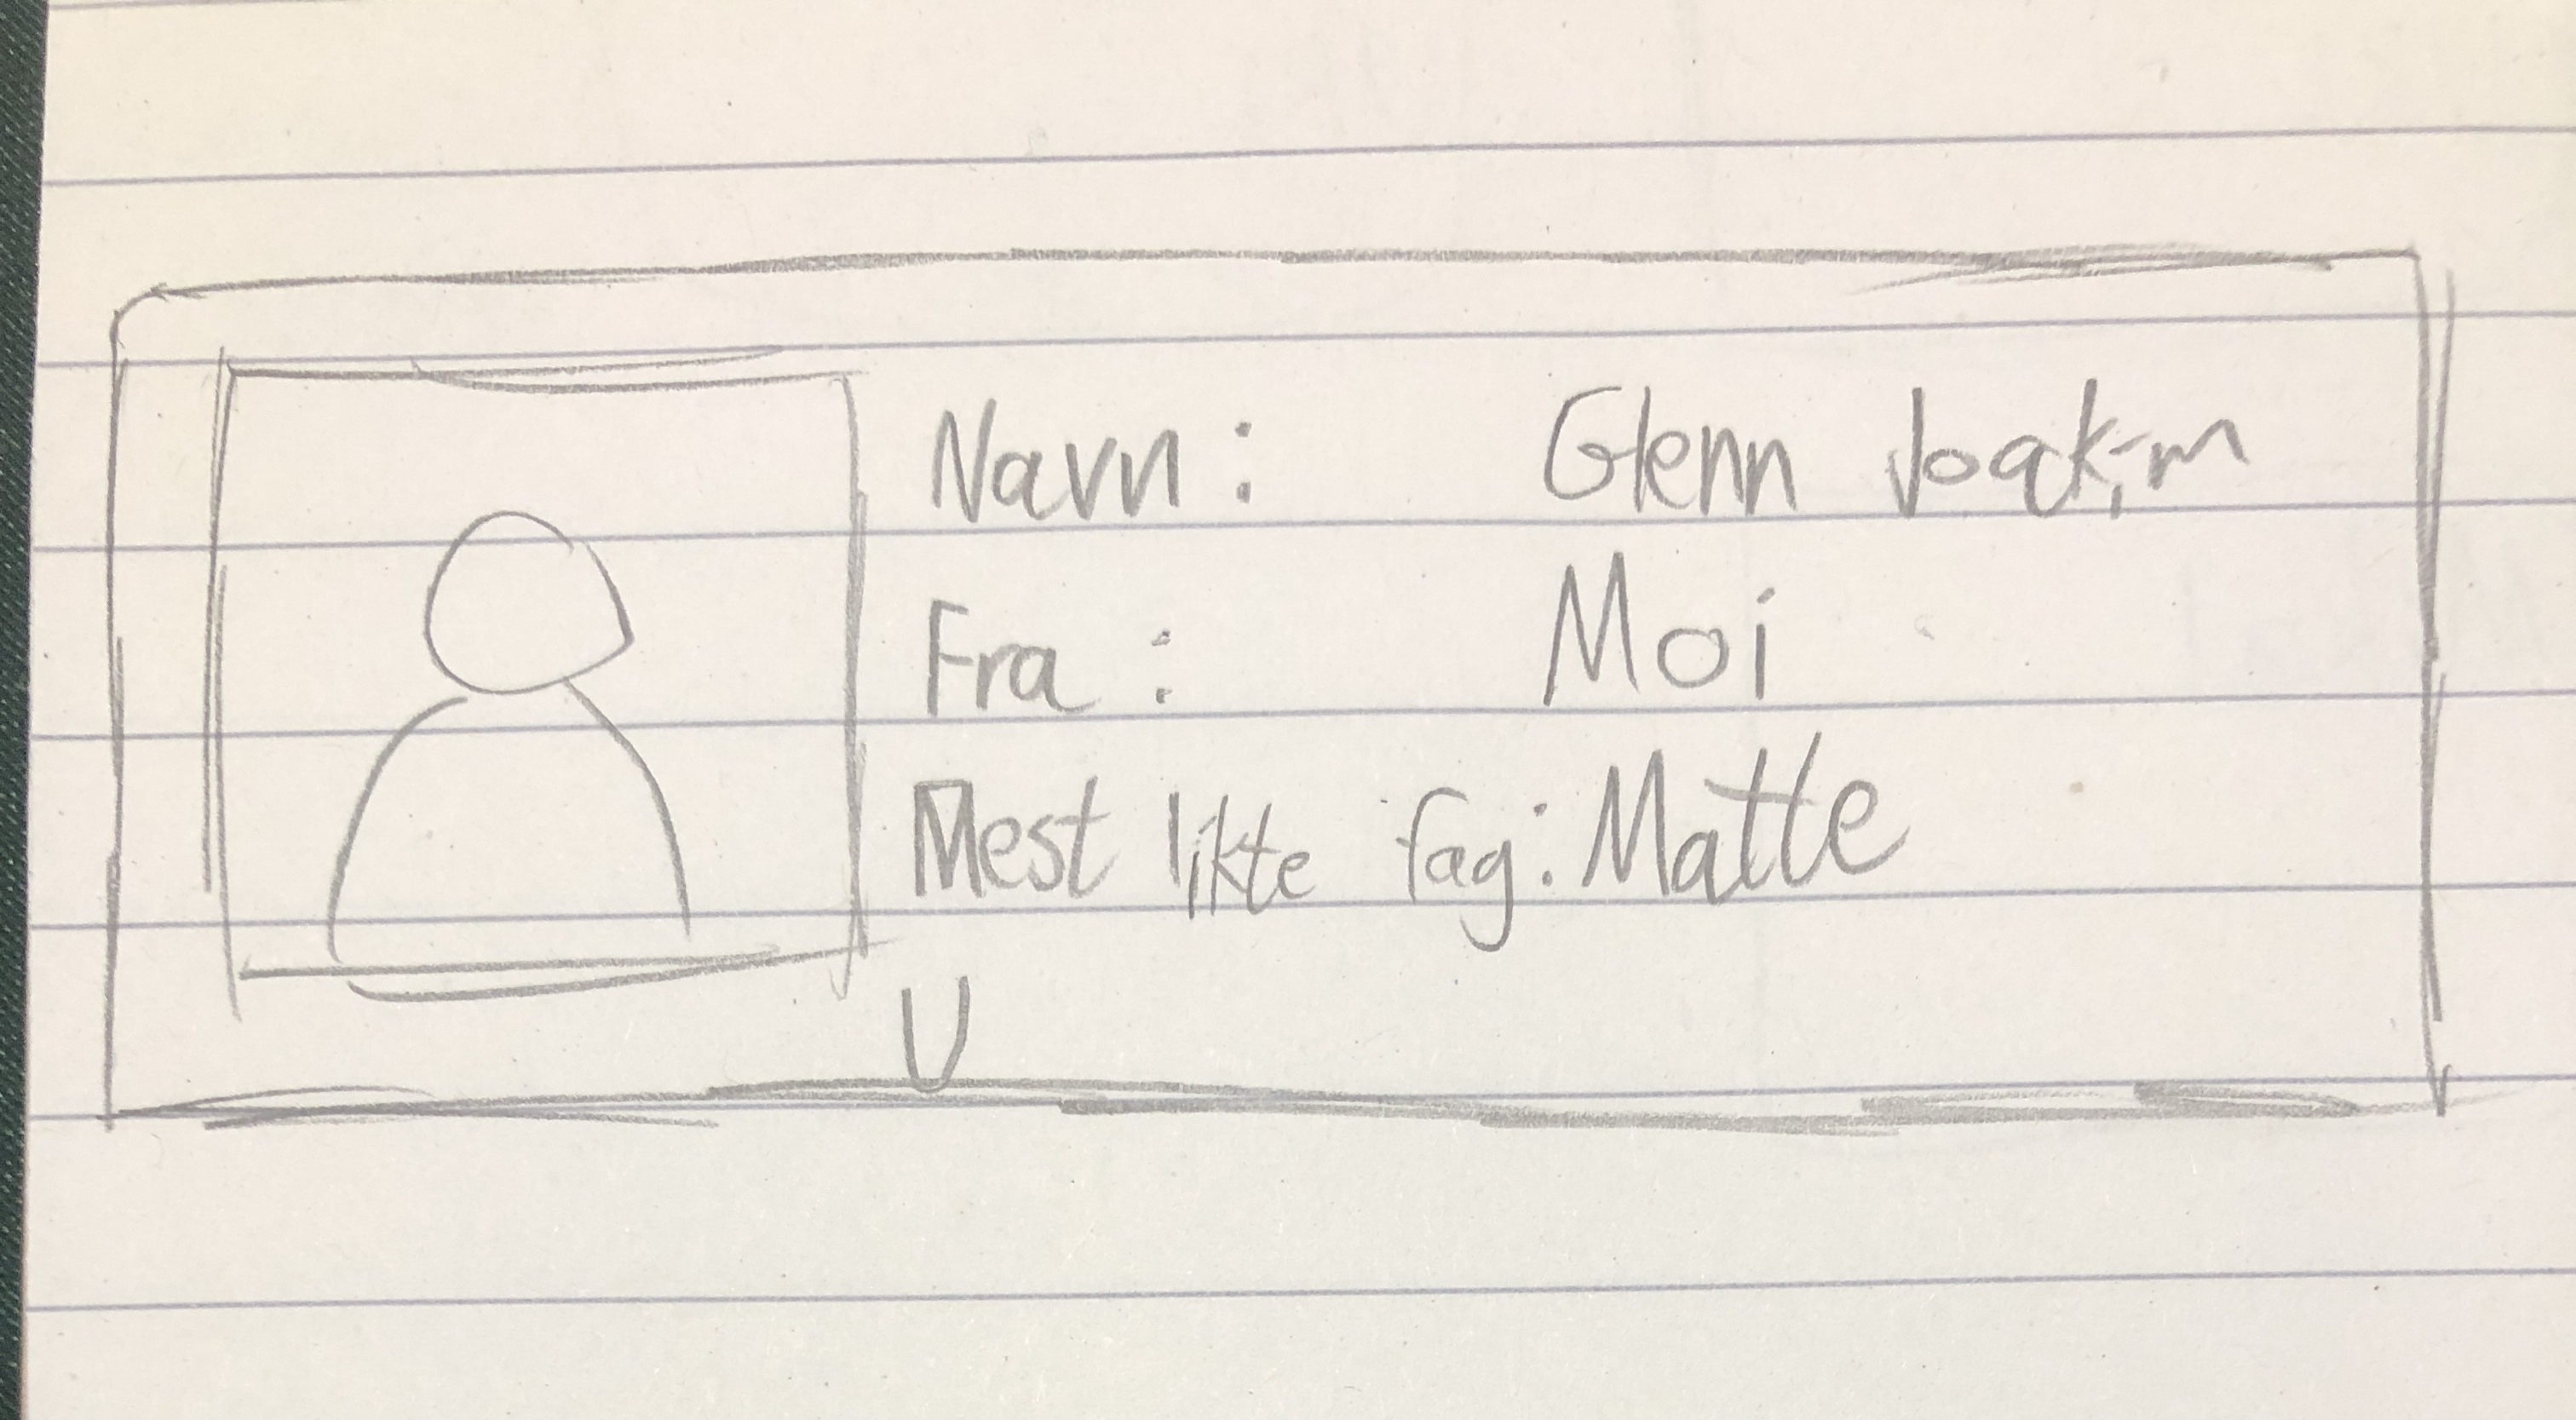 Navn: Glenn Joakim
Fra: Moi
Mest likte fag: Matte
U